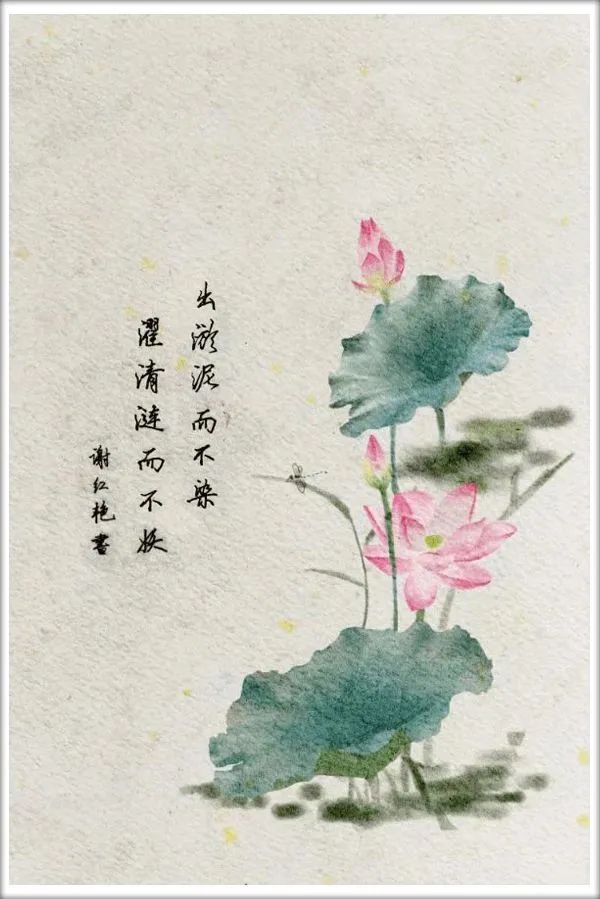 出淤泥而不染
濯清涟而不妖
谢红艳书